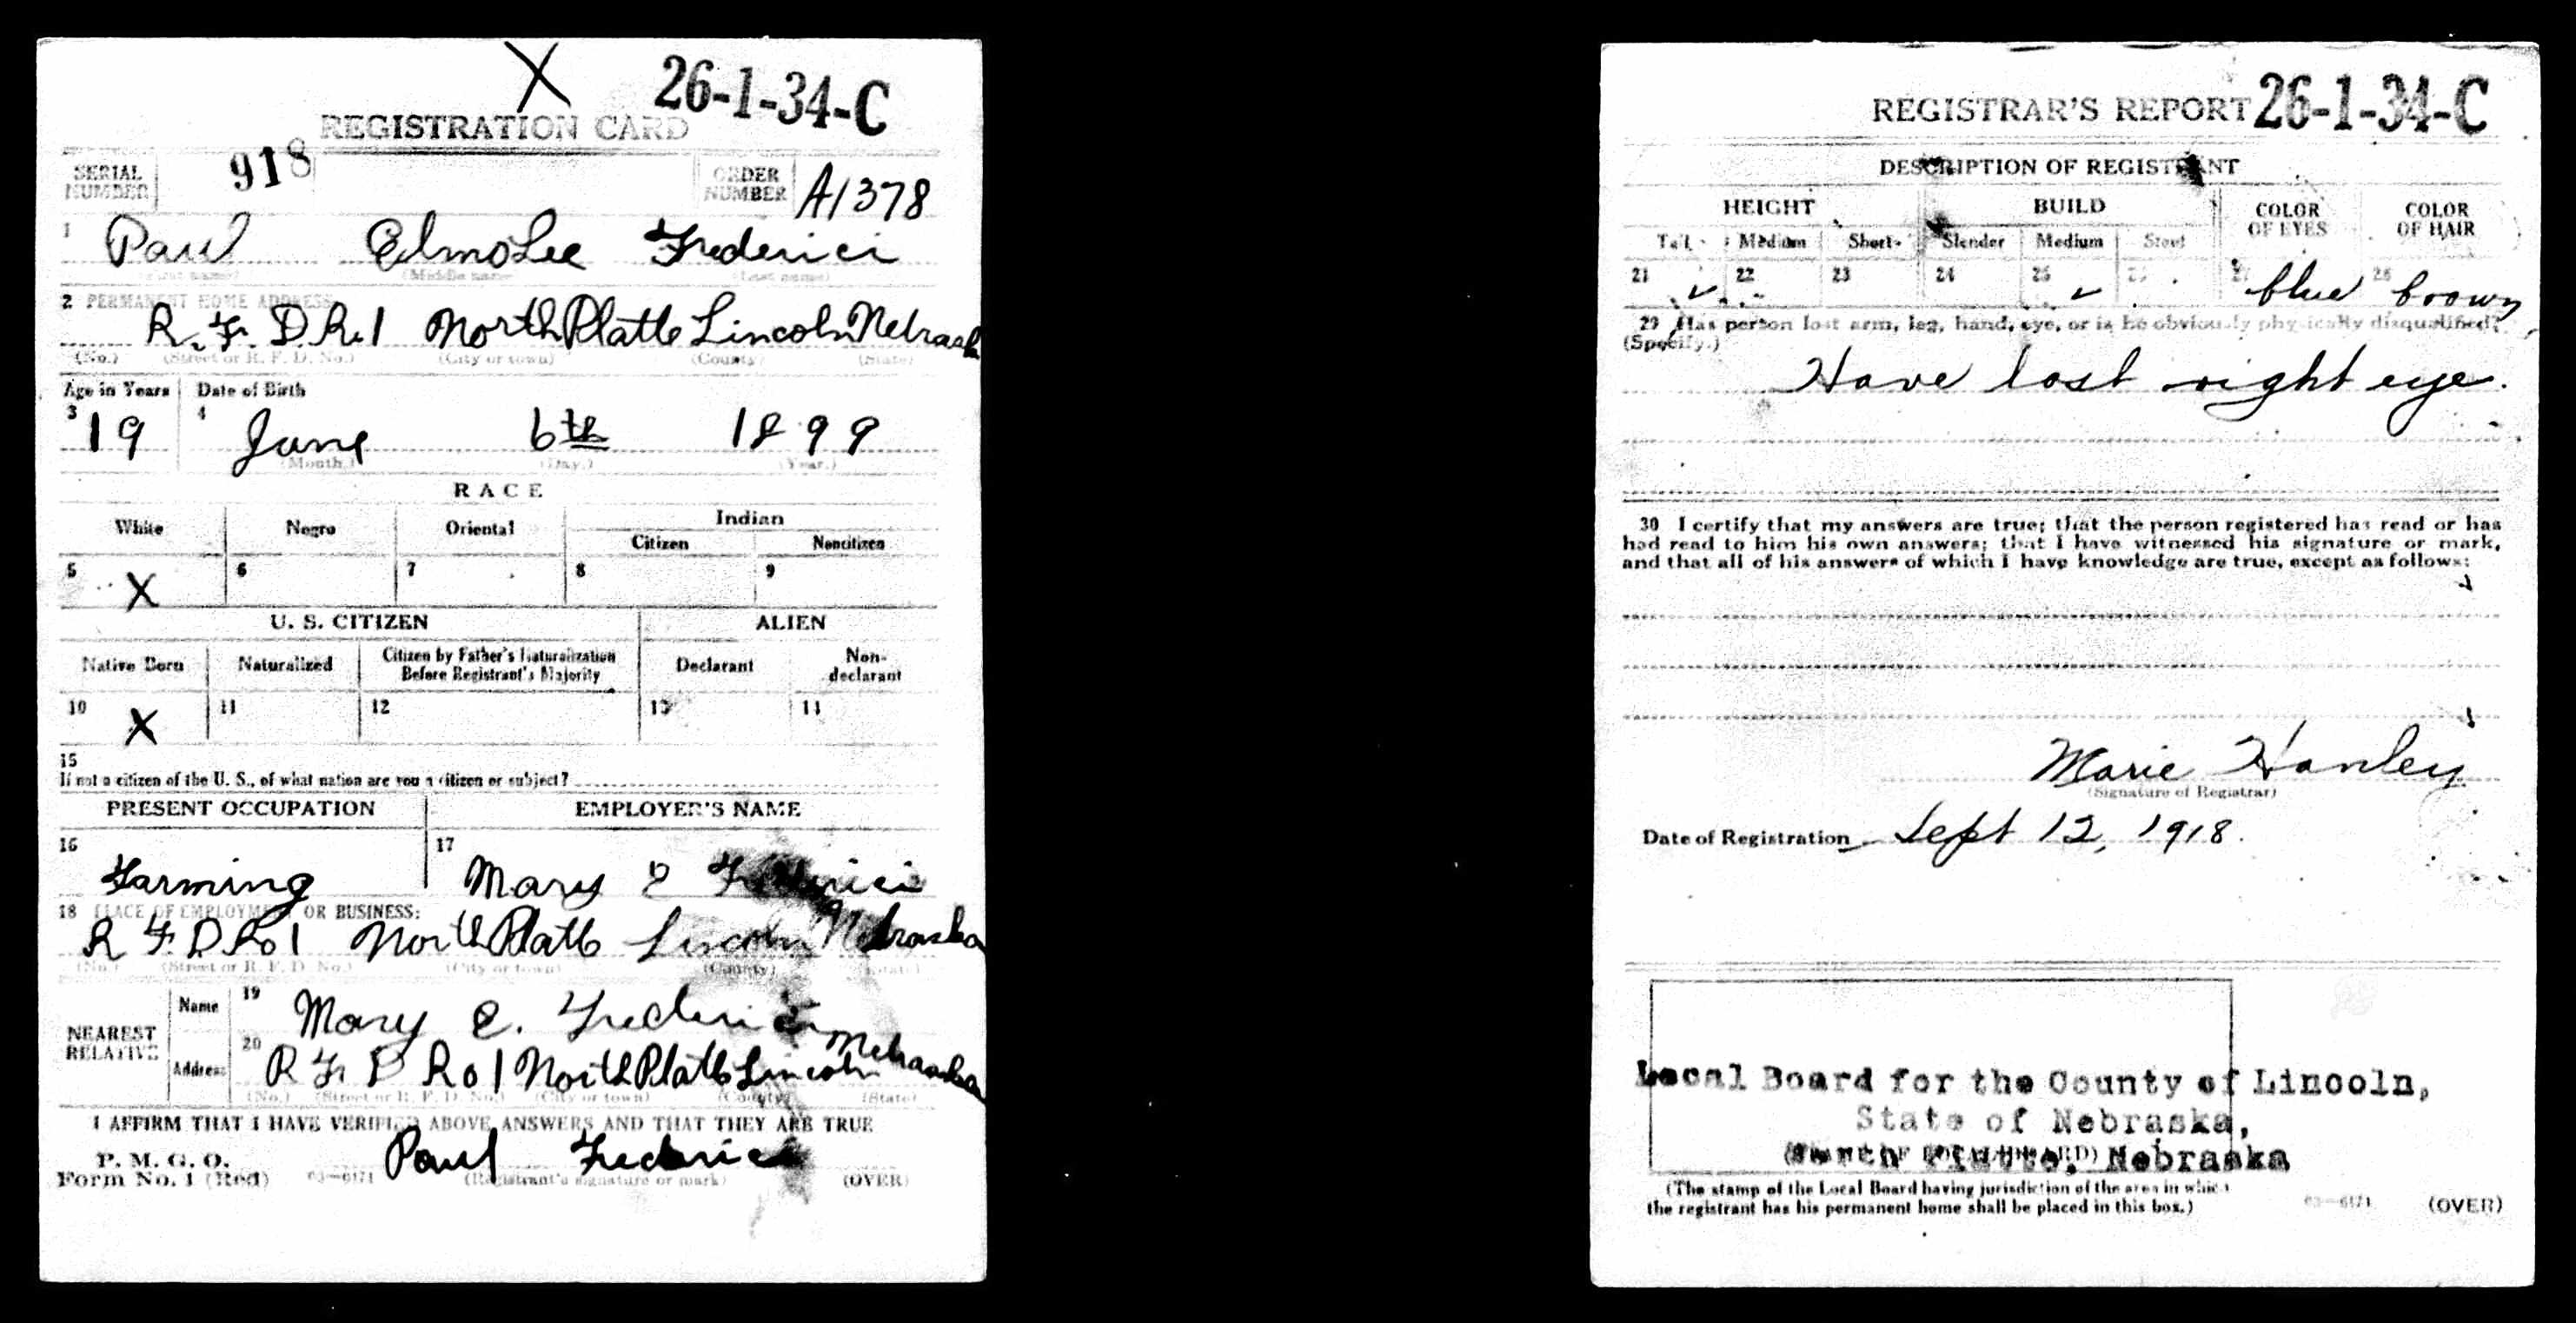 X 26-1-34-C
REGISTRATION CARD
SERIAL NUMBER 918 ORDER NUMBER A1378
1 Paul ElmoLee Frederici
(First name) (Middle name) (Last name)
2 PERMANENT HOME ADDRESS:
R. F. D. R.1 North Platte Lincoln Nebrask
(No.) (Street or R. F. D. No.) (City or town) (County) (State)
Age in Years Date of Birth
3 19 4 June 6th 1899
(Month.) (Day.) (Year.)
RACE
White Negro Oriental Indian
Citizen Noncitizen
5 X 6 7 8 9
U. S. CITIZEN ALIEN
Native Born Naturalized Citizen by Father's Naturalization Before Registrant's Majority Declarant Non-declarant
10 X 11 12 13 14
15
If not a citizen of the U. S., of what nation are you a citizen or subject?
PRESENT OCCUPATION EMPLOYER'S NAME
16 Farming 17 Mary E Frederici
18 PLACE OF EMPLOYMENT OR BUSINESS:
R F D Ro 1 North Platte Lincoln Nebraska
(No.) (Street or R. F. D. No.) (City or town) (County) (State)
NEAREST RELATIVE
Name 19 Mary E. Frederici
Address 20 R F D Ro 1 North Platte Lincoln Nebraska
(No.) (Street or R. F. D. No.) (City or town) (County) (State)
I AFFIRM THAT I HAVE VERIFIED ABOVE ANSWERS AND THAT THEY ARE TRUE
P. M. G. O.
Form No. 1 (Red) 03-6171 Paul Frederici
(Registrant's signature or mark) (OVER)
REGISTRAR'S REPORT 26-1-34-C
DESCRIPTION OF REGISTRANT
HEIGHT BUILD COLOR OF EYES COLOR OF HAIR
Tall Medium Short Slender Medium Stout
21 ✓ 22 23 24 25 ✓ 26 27 blue 28 brown
29 Has person lost arm, leg, hand, eye, or is he obviously physically disqualified?
(Specify.)
Have lost right eye.
30 I certify that my answers are true; that the person registered has read or has
had read to him his own answers; that I have witnessed his signature or mark,
and that all of his answers of which I have knowledge are true, except as follows:
Marie Hanley
(Signature of Registrar)
Date of Registration Sept 12, 1918.
Local Board for the County of Lincoln,
State of Nebraska,
North Platte, Nebraska
(The stamp of the Local Board having jurisdiction of the area in which
the registrant has his permanent home shall be placed in this box.)
03-6171 (OVER)